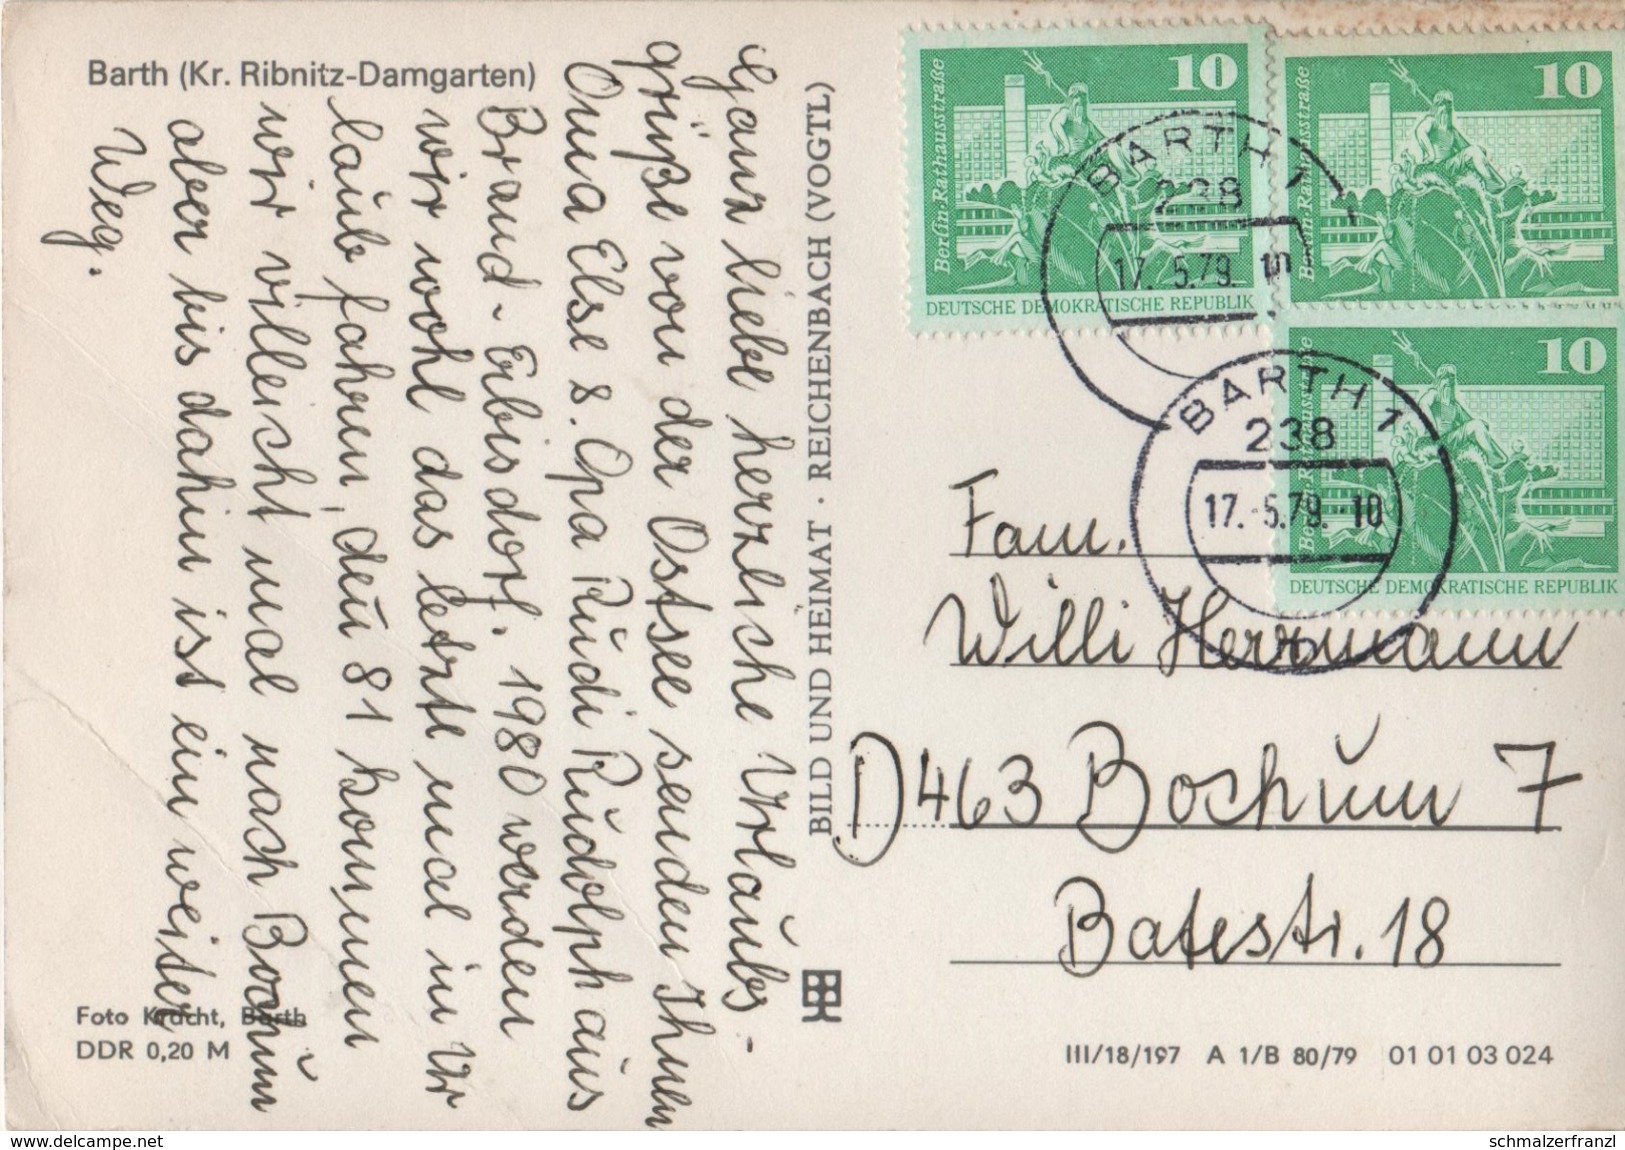 Barth (Kr. Ribnitz-Damgarten)
Ganz liebe herzliche Urlaubs-
grüße von der Ostsee senden Ihnen
Oma Else &. Opa Rudi Rudolph aus
Braund-Erbisdorf. 1980 werden
wir wohl das letzte mal in Ur
laub fahren, den 81 kommen
wir villeicht mal nach Bochum
aber bis dahin ist ein weiter
Weg.
Foto Kracht, Barth
DDR 0,20 M
BILD UND HEIMAT · REICHENBACH (VOGTL)
10
Berlin·Rathausstraße
DEUTSCHE DEMOKRATISCHE REPUBLIK
10
Berlin·Rathausstraße
10
Berlin·Rathausstraße
DEUTSCHE DEMOKRATISCHE REPUBLIK
BARTH 1
238
17.-5.79.
BARTH 1
238
17.-5.79.-10
Fam.
Willi Herrmann
D 463 Bochum 7
Batestr. 18
III/18/197 A 1/B 80/79 01 01 03 024
www.delcampe.net
schmalzerfranzl